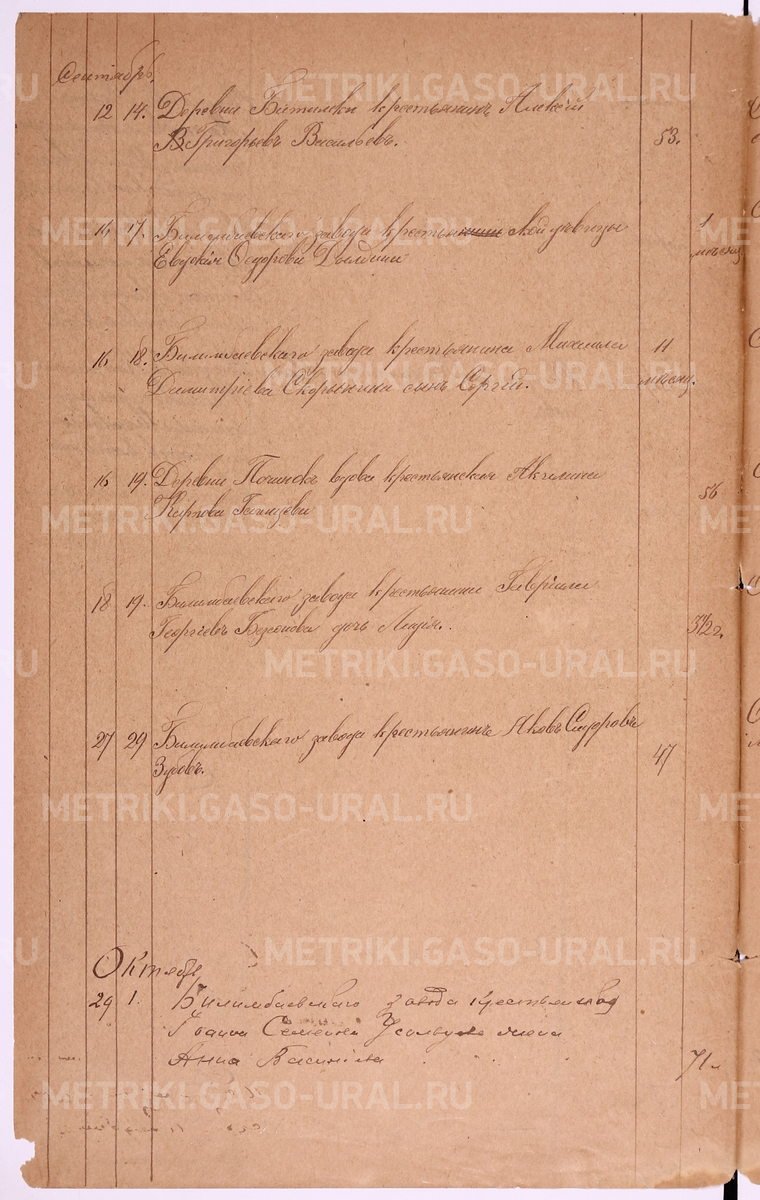 Сентябрь.
12 14. Деревни Битимски крестьянинъ Алексѣй
Григорьевъ Васильевъ. 53.
16 17. Билимбаевскаго завода крестьян ской дѣвицы 1
Евдокія Ѳедорова мѣсяц
16 18. Билимбаевскаго завода крестьянина Михаила 11
Димитріева Скорынина сынъ Сергій. мѣсяц.
16 19. Деревни Починокъ вдова крестьянская Акилина
Карпова 56
18 19. Билимбаевскаго завода крестьянина Гавріила
Георгіевъ Безсонова дочь Лидія. 3 1/2 г.
27 29 Билимбаевскаго завода крестьянинъ Яковъ Сидоровъ
Зубовъ. 47
Октябрь
29 1. Билимбаевскаго завода крестьянина
Іоанна Семенова жена
Анна Васильева 71
METRIKI.GASO-URAL.RU